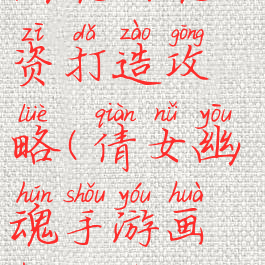 zī dǎ zào gōng
资打造攻
lüè qiàn nǚ yōu
略(倩女幽
hún shǒu yóu huà
魂手游画